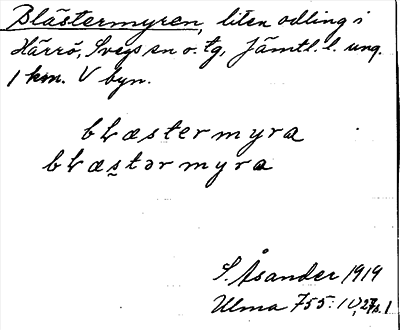 Blästermyren, liten odling i
Härrö, Svegs sn o. tg, Jämtl. l. ung.
1 km. V byn.
bɫæstermyra
bɫæstərmyra
S. Åsander 1919
Ulma 755:10, s. 1